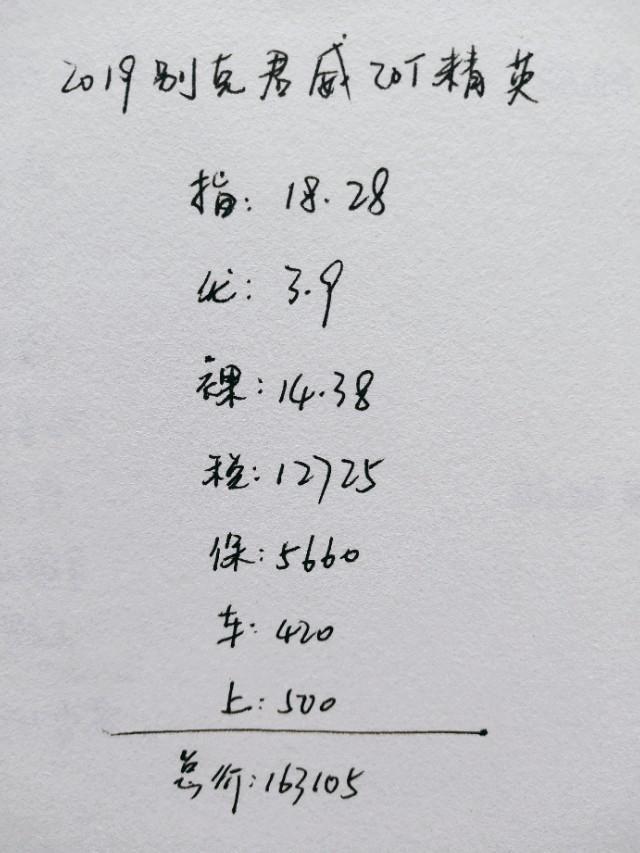 2019别克君威20T精英
指: 18.28
优: 3.9
裸: 14.38
税: 12725
保: 5660
车: 420
上: 500
总价: 163105